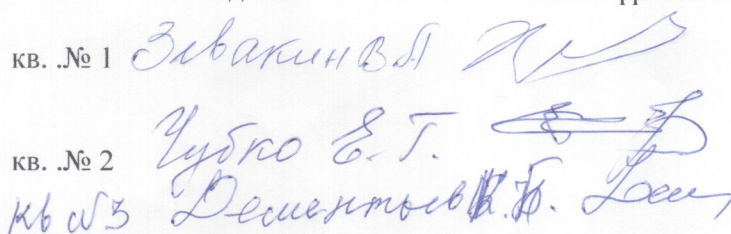 кв. .№ 1 Зевакин В А
кв. .№ 2 Чубко Е. Г.
кв №3 Дементьев